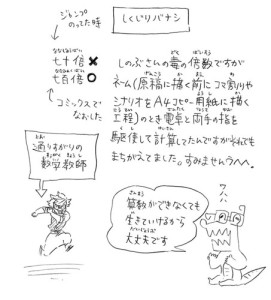 しくじりバナシ
ジャンプ
のってた時
七十倍✖
七百倍○
コミックスで
なおした
しのぶさんの毒の倍数ですが
ネーム(原稿に描く前にコマ割りや
シナリオをA4コピー用紙に描く
工程)のとき電卓と両手の指を
駆使して計算してたんですがそれでも
まちがえてました。すみませんウヘへ。
通りすがりの
数学教師
算数ができなくても
生きていけるから
大丈夫です